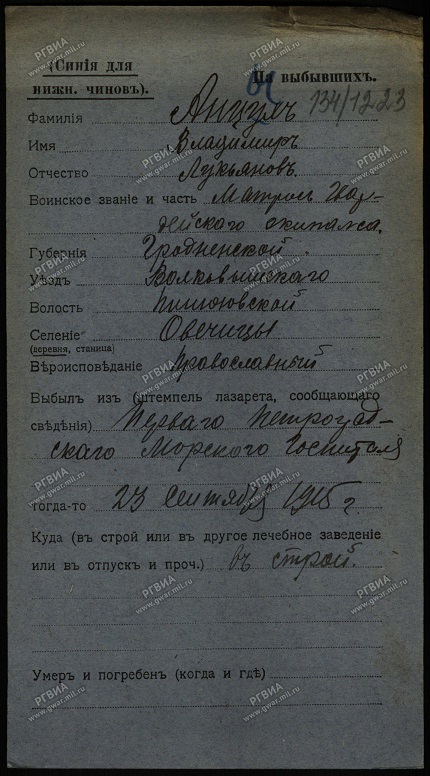 (Синія для
нижн. чиновъ).
На выбывшихъ.
134/1223
Фамилія
Имя Владимиръ
Отчество Лукьяновъ.
Воинское званіе и часть Матросъ Гвар-
дейскаго экипажа.
Губернія Гродненской.
Уѣздъ Волковышскаго
Волость
Селеніе Овечицы
(деревня, станица)
Вѣроисповѣданіе Православный
Выбылъ изъ (штемпель лазарета, сообщающаго
свѣдѣнія) Перваго Петроград-
скаго Морского Госпиталя
тогда-то 23 Сентября 1915 г.
Куда (въ строй или въ другое лечебное заведеніе
или въ отпускъ и проч.) въ строй.
Умеръ и погребенъ (когда и гдѣ)
РГВИА
www.gwar.mil.ru